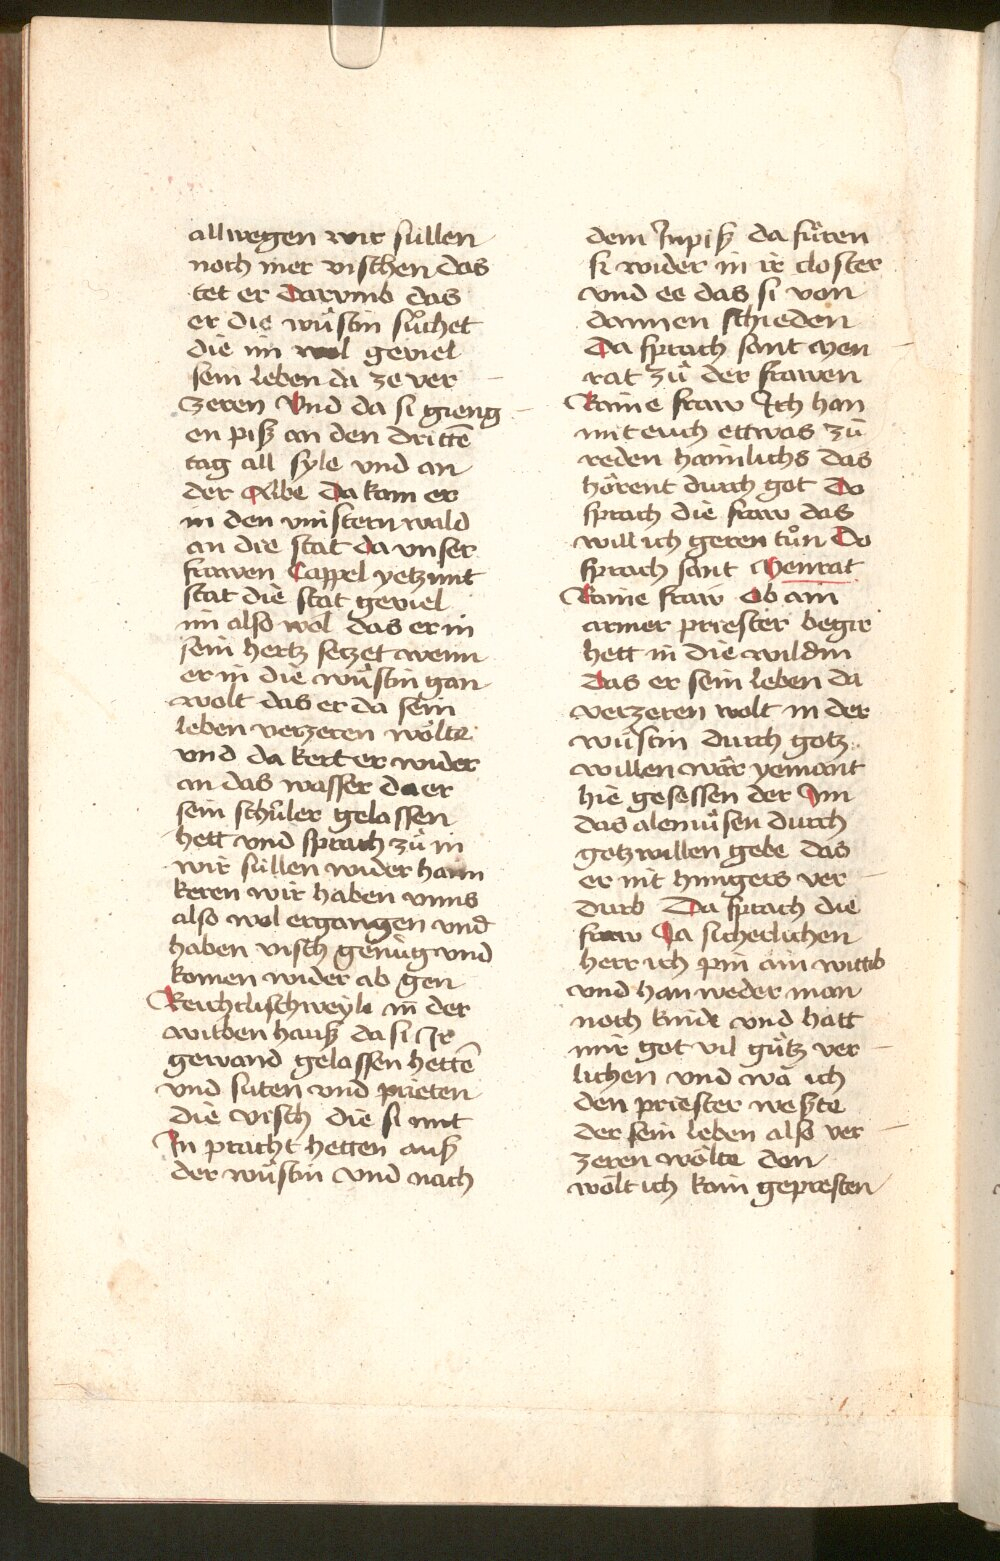 allwegen wir süllen
noch mer vischen das
tet er Darvmb das
er die wüstin sůchet
die im wol geviel
sein leben da ze ver
zeren Vnd da si gieng
en piß an den dritte᷑
tag all syle vnd an
der Albe Da kam er
in den vinstern wald
an die stat da vnser
frawen Cappel yetzunt
stat die stat geviel
im also wol das er in
sein hertz setzet wenn
er in die wüstin gan
wolt das er da sein
leben verzeren wölte
vnd da kert er wider
an das wasser da er
sein schůler gelassen
hett vnd sprach zů in
wir süllen wider haim
keren wir haben vnns
also wol ergangen vnd
haben visch genůg vnd
komen wider ab gen
Reichtlischweyle in der
witben hauß da si Ir
gewand gelassen hettē
vnd suten vnd prieten
die visch die si mit
In pracht hetten auß
der wüstin Vnd nach
dem Inpiß da fůren
si wider in ir closter
vnd ee das si von
dannen schieden
Da sprach sant Men
rat zů der frawen
Raine fraw Ich han
mit euch ettwas zů
reden haimlichs das
hörent durch got Do
sprach die fraw das
will ich geren tůn Do
sprach sant Menrat
Raine fraw Ob ain
armer priester begir
hett in die wildin
Das er sein leben da
verzeren wolt in der
wüstin durch gotz
willen wär yemant
hie gesessen der Im
das alemůsen durch
gotz willen gebe das
er nit hungers ver
durb Da sprach die
fraw Ja sicherlichen
herr ich pin ain wittib
vnd han weder man
noch kinde vnd hatt
mir got vil gůtz ver
lichen vnd wä ich
den priester weßte
der sein leben also ver
zeren wölte den
wölt ich kain gepresten